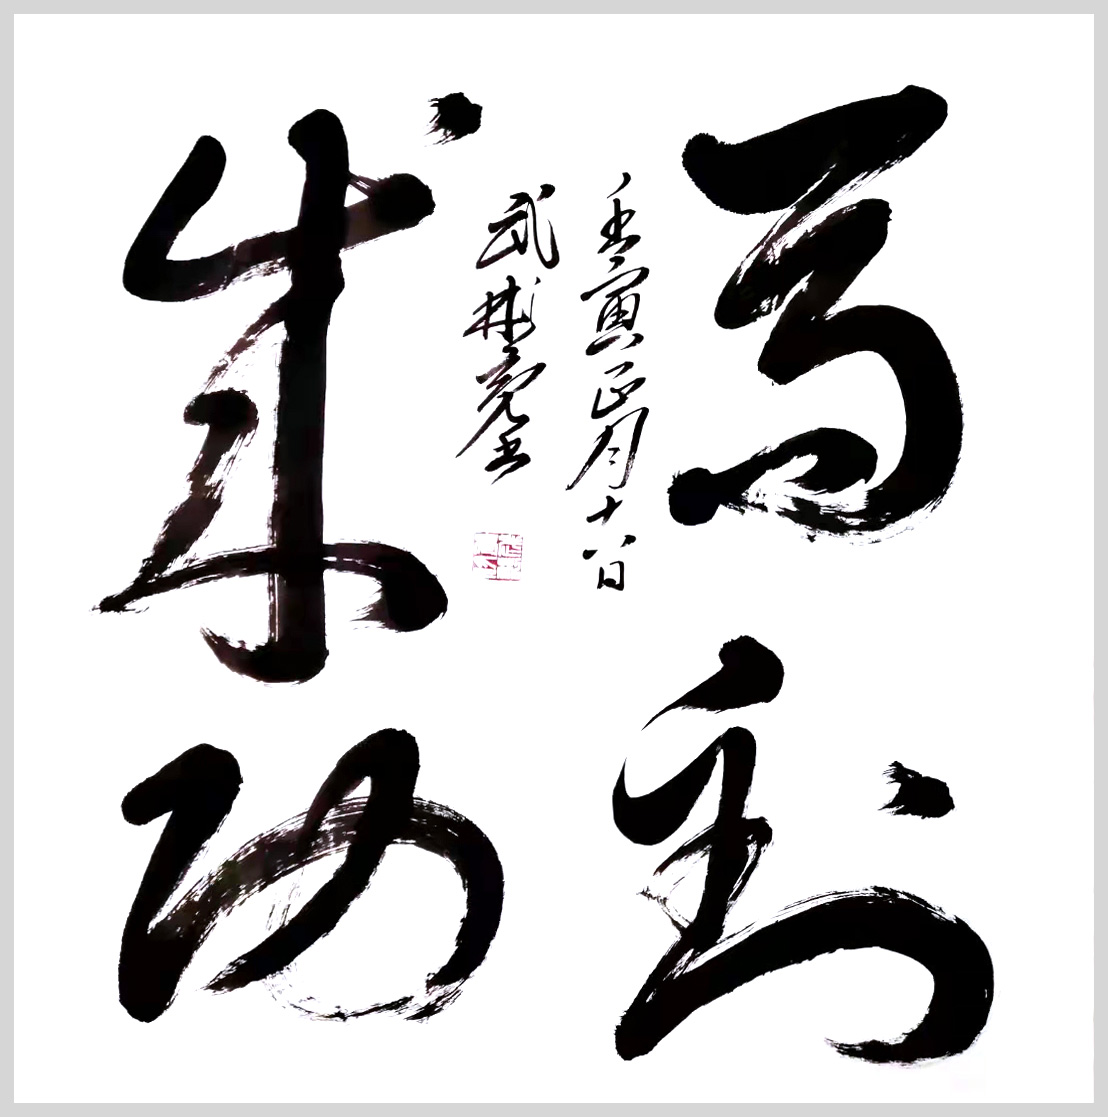 马到
成功
壬寅正月十八日
武林